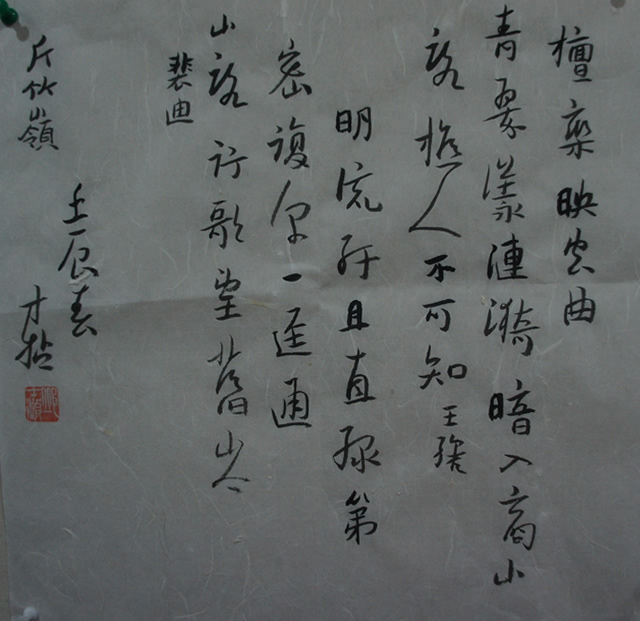 檀欒映空曲
青翠漾漣漪暗入商山
路樵人不可知 王維
明流紆且直綠第
密復深一逕通
山路行歌望舊岑
裴迪
斤竹嶺
壬辰春
才